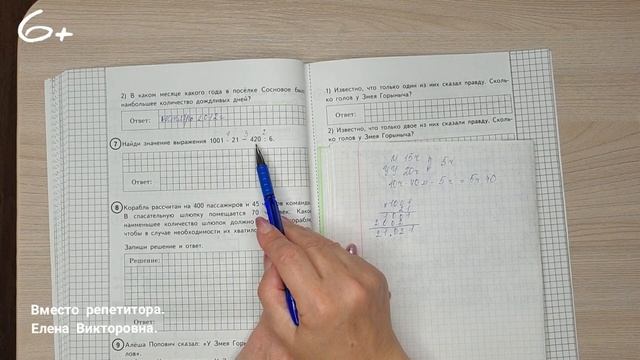 6+
2) В каком месяце какого года в посёлке Сосновое был
наибольшее количество дождливых дней?
Ответ: 2012 г
7 Найди значение выражения 1001 · 21 − 420 : 6.
Ответ:
8 Корабль рассчитан на 400 пассажиров и 45 команд
В спасательную шлюпку помещается 70
наименьшее количество шлюпок должно
чтобы в случае необходимости их хватило
Запиши решение и ответ.
Решение:
Ответ:
9 Алёша Попович сказал: «У Змея Горы
лов».
1) Известно, что только один из них сказал правду. Сколь-
ко голов у Змея Горыныча?
Ответ:
2) Известно, что только двое из них сказали правду. Сколь-
ко голов у Змея Горыныча?
1001
21
1001
2002
21021
Вместо репетитора.
Елена Викторовна.